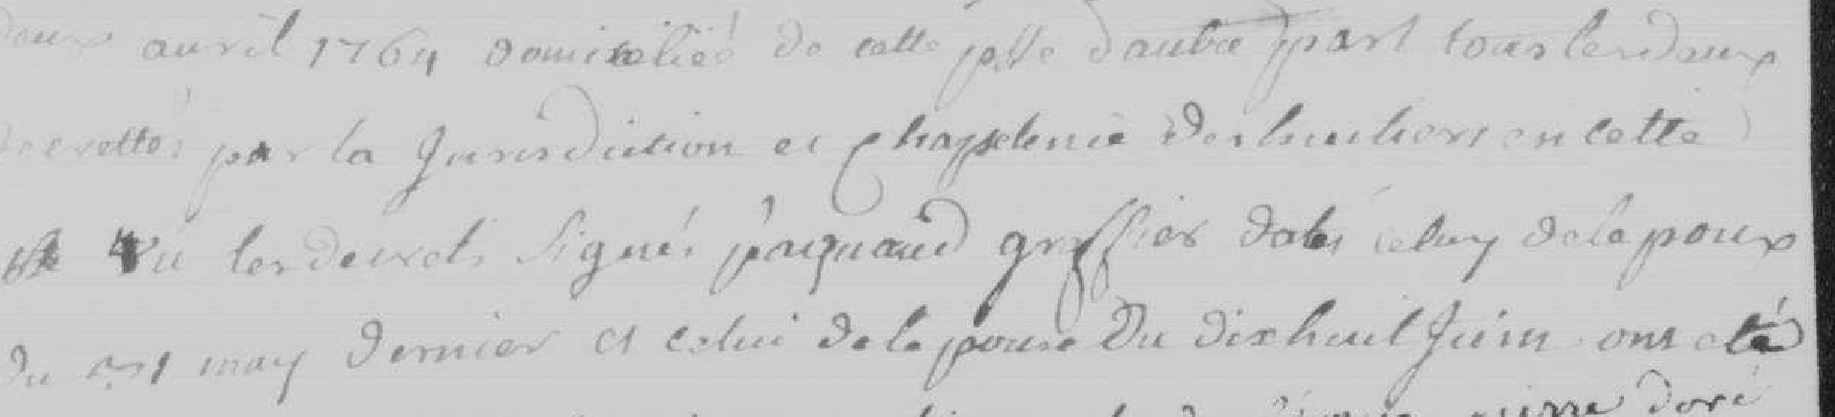 deux avril 1764 domicilié de cette psse dautre part tous les deux
decretés par la Jurisdiction et Chaptelenie des huiliers en cette
psse vu les decrets signés jacquaud greffier datés celuy de lepoux
du may dernier et celui de lepouse du dixhuit Juin ont eté
pierre doré